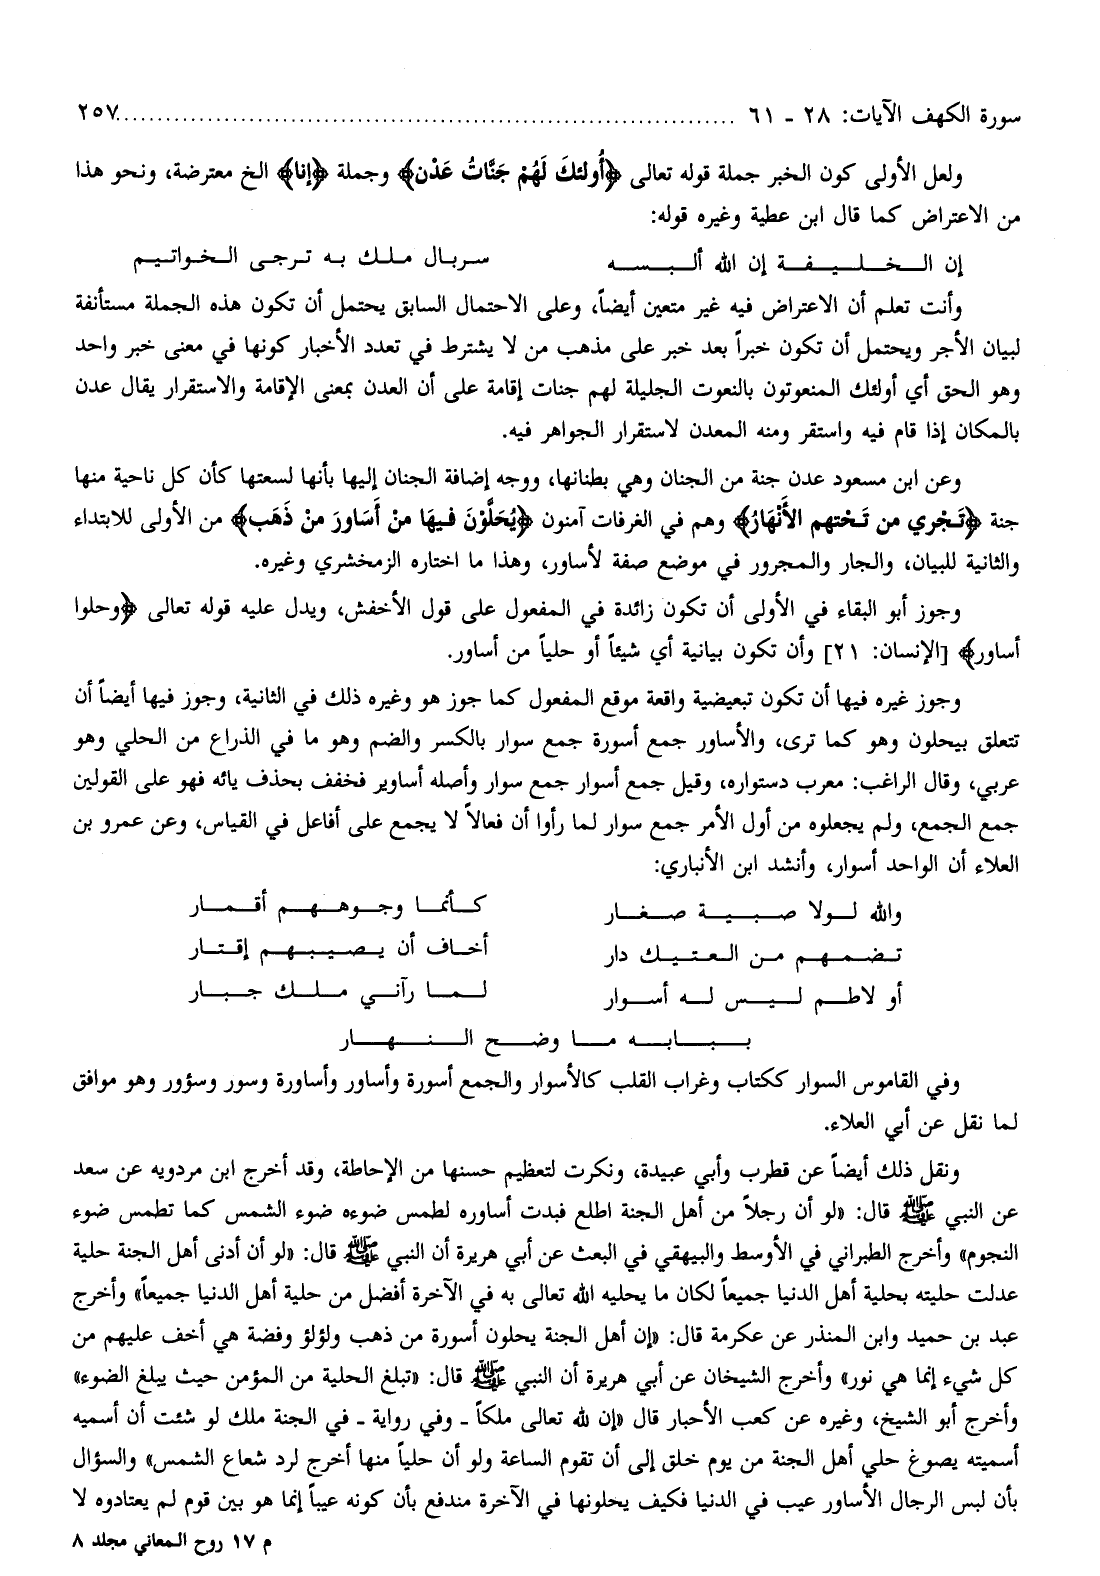 سورة الكهف الآيات: ٢٨ - ٦١ ........................................................................ ٢٥٧
ولعل الأولى كون الخبر جملة قوله تعالى ﴿أُولئكَ لَهُمْ جَنَّاتُ عَدْن﴾ وجملة ﴿إنا﴾ الخ معترضة، ونحو هذا
من الاعتراض كما قال ابن عطية وغيره قوله:
إن الـخـلـيـفـة إن الله ألـبـسـه سربال مـلـك بـه تـرجـى الـخـواتـيـم
وأنت تعلم أن الاعتراض فيه غير متعين أيضاً، وعلى الاحتمال السابق يحتمل أن تكون هذه الجملة مستأنفة
لبيان الأجر ويحتمل أن تكون خبراً بعد خبر على مذهب من لا يشترط في تعدد الأخبار كونها في معنى خبر واحد
وهو الحق أي أولئك المنعوتون بالنعوت الجليلة لهم جنات إقامة على أن العدن بمعنى الإقامة والاستقرار يقال عدن
بالمكان إذا قام فيه واستقر ومنه المعدن لاستقرار الجواهر فيه.
وعن ابن مسعود عدن جنة من الجنان وهي بطنانها، ووجه إضافة الجنان إليها بأنها لسعتها كأن كل ناحية منها
جنة ﴿تَجْري من تَحْتهم الأَنْهَارُ﴾ وهم في الغرفات آمنون ﴿يُحَلَّوْنَ فيهَا منْ أَسَاورَ منْ ذَهَب﴾ من الأولى للابتداء
والثانية للبيان، والجار والمجرور في موضع صفة لأساور، وهذا ما اختاره الزمخشري وغيره.
وجوز أبو البقاء في الأولى أن تكون زائدة في المفعول على قول الأخفش، ويدل عليه قوله تعالى ﴿وحلوا
أساور﴾ [الإنسان: ٢١] وأن تكون بيانية أي شيئاً أو حلياً من أساور.
وجوز غيره فيها أن تكون تبعيضية واقعة موقع المفعول كما جوز هو وغيره ذلك في الثانية، وجوز فيها أيضاً أن
تتعلق بيحلون وهو كما ترى، والأساور جمع أسورة جمع سوار بالكسر والضم وهو ما في الذراع من الحلي وهو
عربي، وقال الراغب: معرب دستواره، وقيل جمع أسوار جمع سوار وأصله أساوير فخفف بحذف يائه فهو على القولين
جمع الجمع، ولم يجعلوه من أول الأمر جمع سوار لما رأوا أن فعالاً لا يجمع على أفاعل في القياس، وعن عمرو بن
العلاء أن الواحد أسوار، وأنشد ابن الأنباري:
والله لـولا صـبـيـة صـغـار كـأنمـا وجـوهـهـم أقـمـار
تـضـمـهـم مـن الـعـتـيـك دار أخـاف أن يـصـيـبـهـم إقـتـار
أو لاطـم لـيـس لـه أسـوار لـمـا رآنـي مـلـك جـبـار
بـبـابـه مـا وضـح الـنـهـار
وفي القاموس السوار ككتاب وغراب القلب كالأسوار والجمع أسورة وأساور وأساورة وسور وسؤور وهو موافق
لما نقل عن أبي العلاء.
ونقل ذلك أيضاً عن قطرب وأبي عبيدة، ونكرت لتعظيم حسنها من الإحاطة، وقد أخرج ابن مردويه عن سعد
عن النبي ﷺ قال: «لو أن رجلاً من أهل الجنة اطلع فبدت أساوره لطمس ضوءه ضوء الشمس كما تطمس ضوء
النجوم» وأخرج الطبراني في الأوسط والبيهقي في البعث عن أبي هريرة أن النبي ﷺ قال: «لو أن أدنى أهل الجنة حلية
عدلت حليته بحلية أهل الدنيا جميعاً لكان ما يحليه الله تعالى به في الآخرة أفضل من حلية أهل الدنيا جميعاً» وأخرج
عبد بن حميد وابن المنذر عن عكرمة قال: «إن أهل الجنة يحلون أسورة من ذهب ولؤلؤ وفضة هي أخف عليهم من
كل شيء إنما هي نور» وأخرج الشيخان عن أبي هريرة أن النبي ﷺ قال: «تبلغ الحلية من المؤمن حيث يبلغ الضوء»
وأخرج أبو الشيخ، وغيره عن كعب الأحبار قال «إن لله تعالى ملكاً ـ وفي رواية ـ في الجنة ملك لو شئت أن أسميه
أسميته يصوغ حلي أهل الجنة من يوم خلق إلى أن تقوم الساعة ولو أن حلياً منها أخرج لرد شعاع الشمس» والسؤال
بأن لبس الرجال الأساور عيب في الدنيا فكيف يحلونها في الآخرة مندفع بأن كونه عيباً إنما هو بين قوم لم يعتادوه لا
م ١٧ روح المعاني مجلد ٨